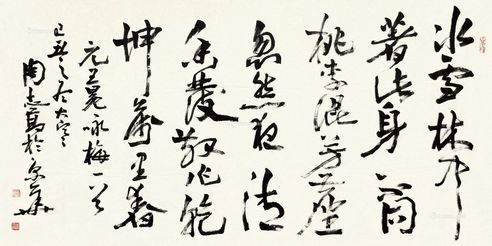 冰雪林中
著此身不同
桃李混芳塵
忽然一夜清
香發散作乾
坤萬里春
元王冕咏梅一首
己丑之冬大寒
周志高於京華